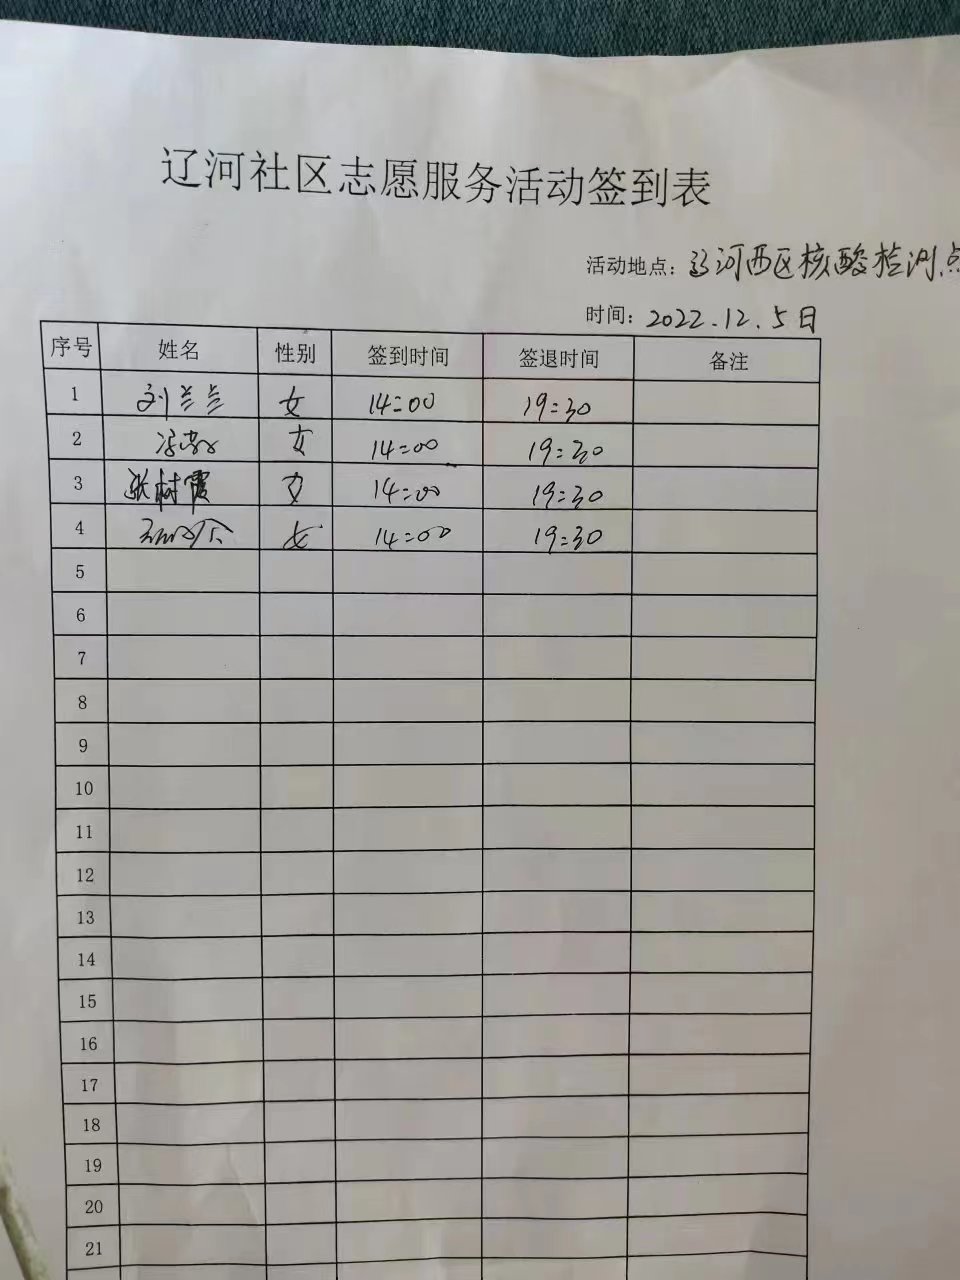 辽河社区志愿服务活动签到表
活动地点：辽河西区核酸检测点
时间：2022.12.5日
序号 姓名 性别 签到时间 签退时间 备注
1 刘兰兰 女 14:00 19:30
2 女 14:00 19:30
3 张树霞 女 14:00 19:30
4 女 14:00 19:30
5
6
7
8
9
10
11
12
13
14
15
16
17
18
19
20
21